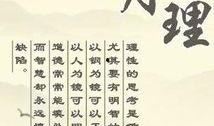 理
理性的思考是
尤其要有明智
以铜为镜可以
以人为镜可以
道德常常能填
而智慧却永远
缺陷。